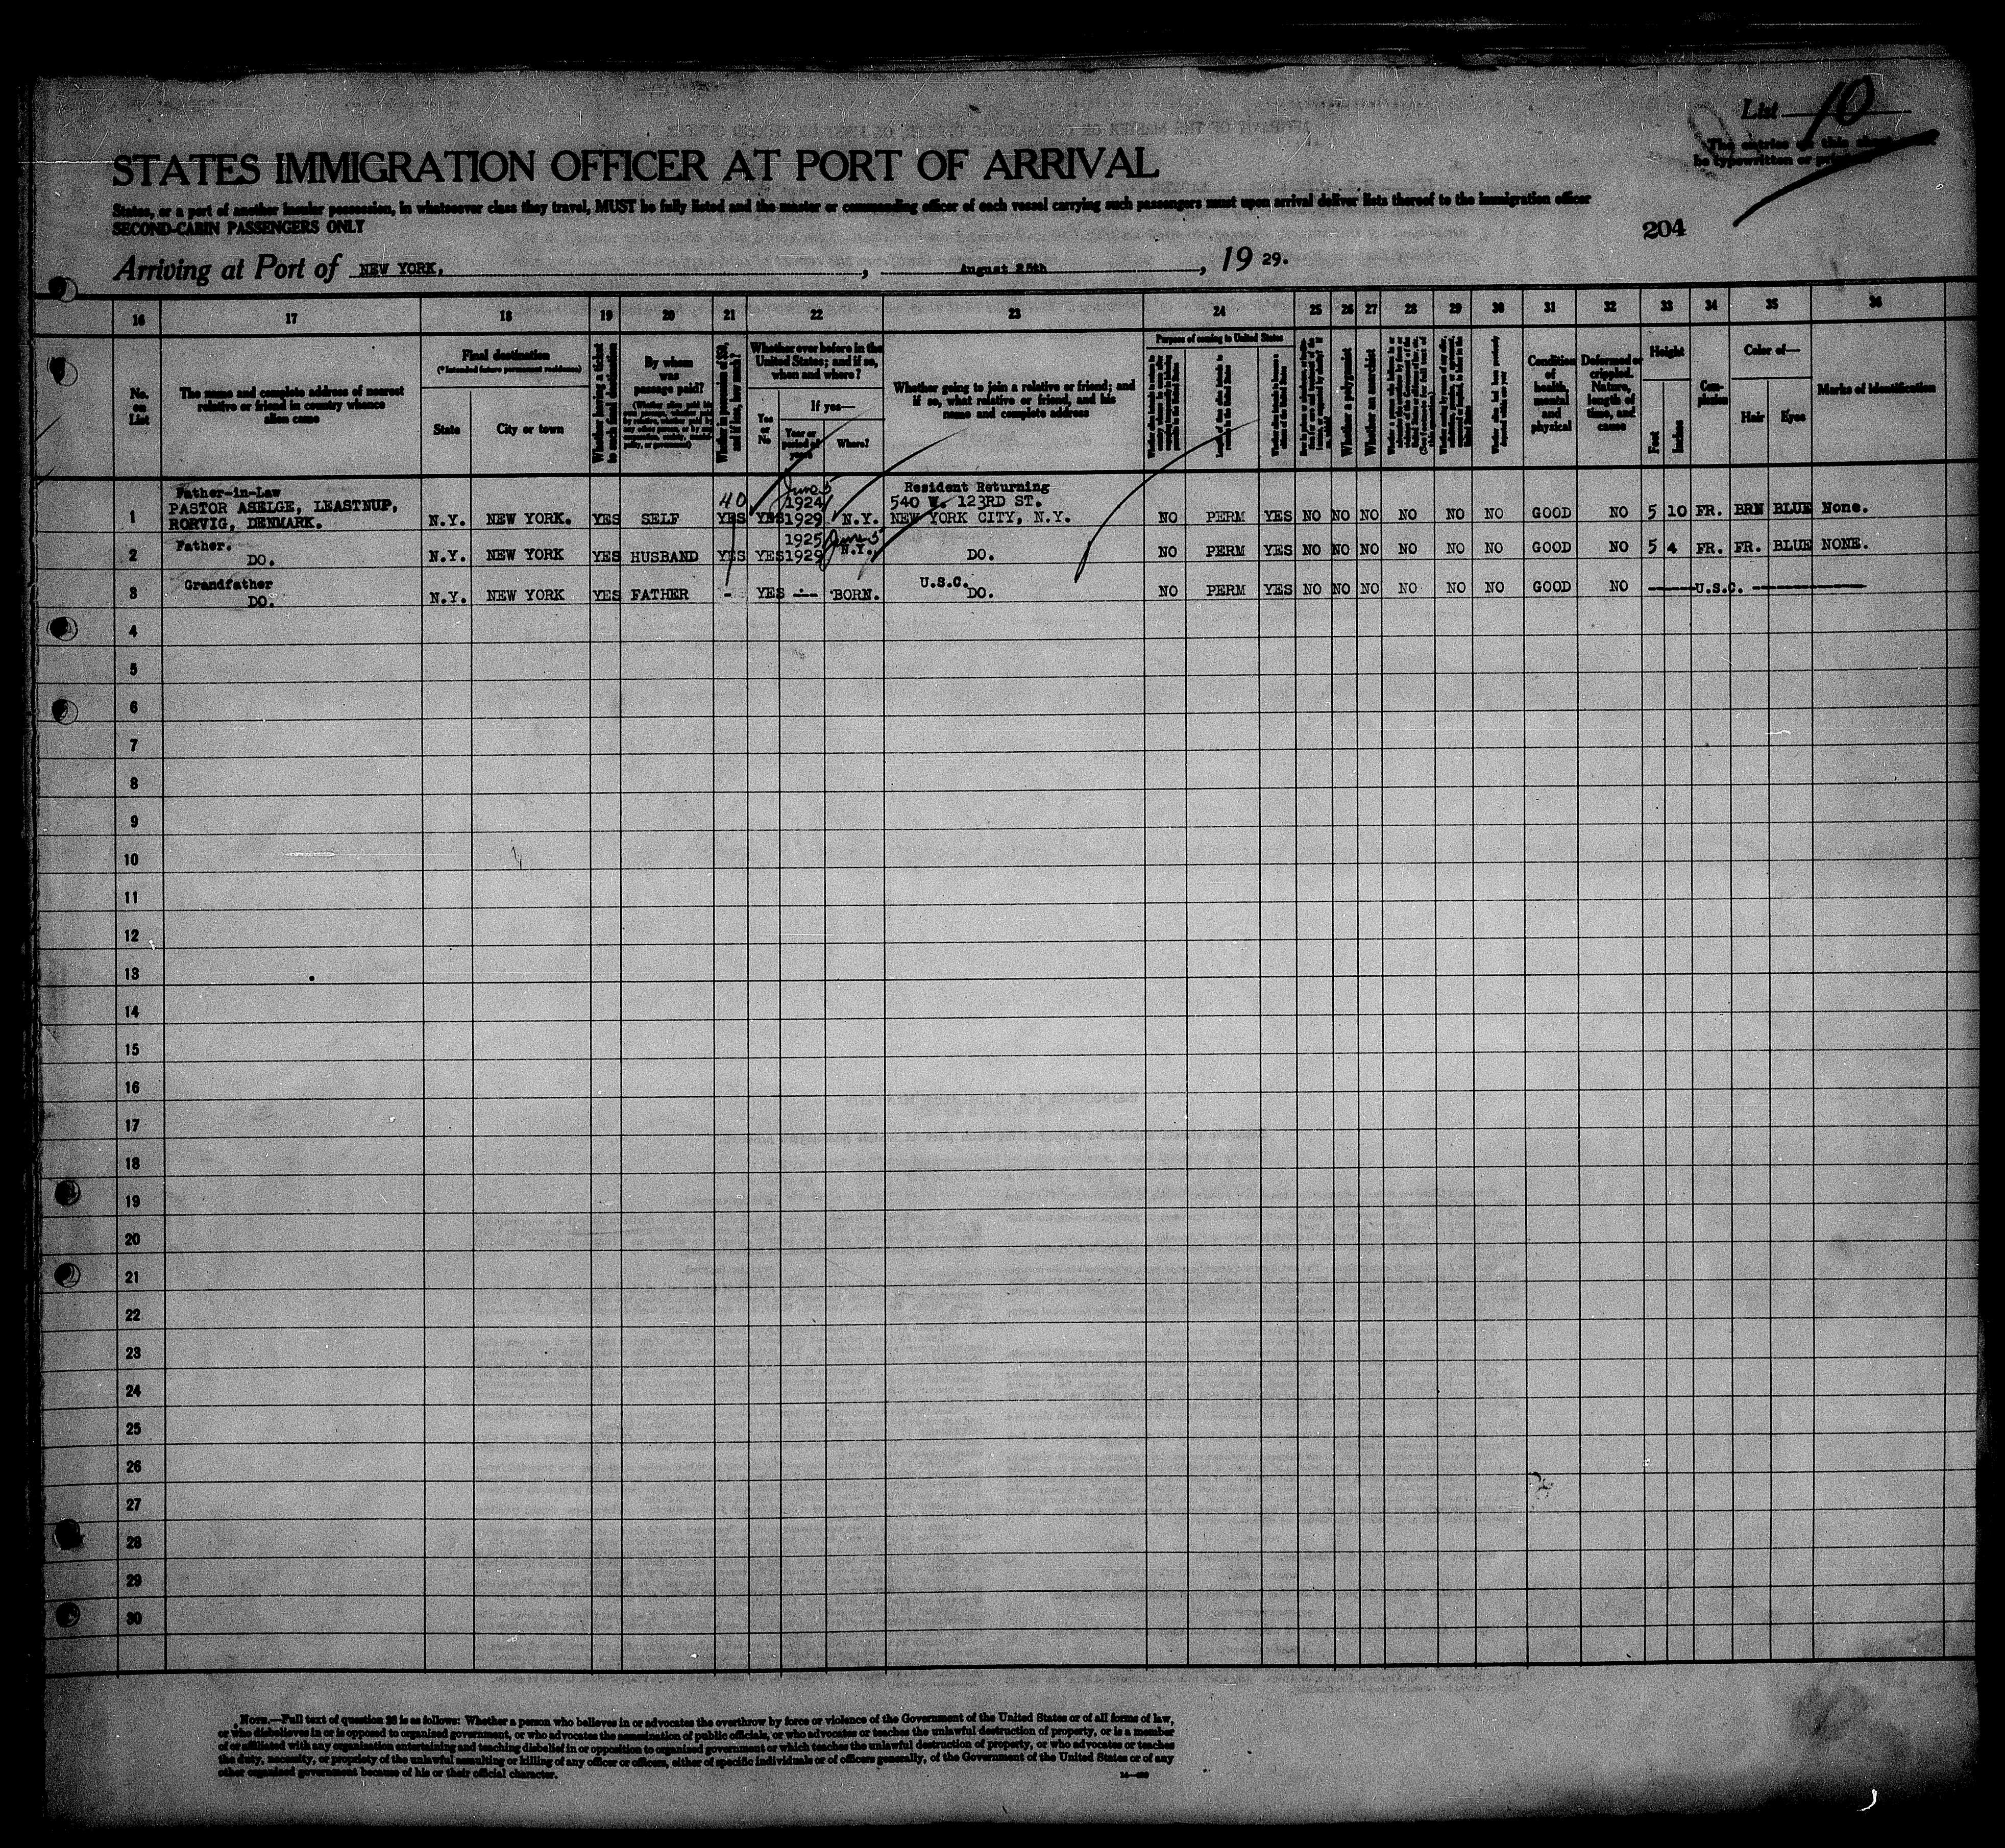 List 10
The entries on this sheet must
be typewritten or printed
STATES IMMIGRATION OFFICER AT PORT OF ARRIVAL
States, or a port of another insular possession, in whatsoever class they travel, MUST be fully listed and the master or commanding officer of each vessel carrying such passengers must upon arrival deliver lists thereof to the immigration officer
SECOND-CABIN PASSENGERS ONLY
204
Arriving at Port of NEW YORK, , August 25th , 19 29.
16 17 18 19 20 21 22 23 24 25 26 27 28 29 30 31 32 33 34 35 36
No. on List
The name and complete address of nearest relative or friend in country whence alien came
Final destination
(*Intended future permanent residence)
State
City or town
Whether having a ticket to such final destination
By whom was passage paid?
Whether in possession of $50, and if less, how much?
Whether ever before in the United States; and if so, when and where?
Yes or No
If yes—
Year or period of years
Where?
Whether going to join a relative or friend; and if so, what relative or friend, and his name and complete address
Purpose of coming to United States
Whether a polygamist
Whether an anarchist
Condition of health, mental and physical
Deformed or crippled. Nature, length of time, and cause
Height
Feet
Inches
Complexion
Color of—
Hair
Eyes
Marks of identification
Father-in-Law Resident Returning
PASTOR ASELGE, LEASTNUP, 40 June 5 1924 540 W. 123RD ST.
1 RORVIG, DENMARK. N.Y. NEW YORK. YES SELF YES YES 1929 N.Y. NEW YORK CITY, N.Y. NO PERM YES NO NO NO NO NO NO GOOD NO 5 10 FR. BRN BLUE None.
Father. 1925 June 5
2 DO. N.Y. NEW YORK YES HUSBAND YES YES 1929 N.Y. DO. NO PERM YES NO NO NO NO NO NO GOOD NO 5 4 FR. FR. BLUE NONE.
Grandfather U.S.C.
3 DO. N.Y. NEW YORK YES FATHER - YES -- BORN. DO. NO PERM YES NO NO NO NO NO NO GOOD NO ——U.S.C. ——
4
5
6
7
8
9
10
11
12
13
14
15
16
17
18
19
20
21
22
23
24
25
26
27
28
29
30
NOTE.—Full text of question 28 is as follows: Whether a person who believes in or advocates the overthrow by force or violence of the Government of the United States or of all forms of law,
or who disbelieves in or is opposed to organized government, or who advocates the assassination of public officials, or who advocates or teaches the unlawful destruction of property, or is a member
of or affiliated with any organization entertaining and teaching disbelief in or opposition to organized government or which teaches the unlawful destruction of property, or who advocates or teaches
the duty, necessity, or propriety of the unlawful assaulting or killing of any officer or officers, either of specific individuals or of officers generally, of the Government of the United States or of any
other organized government because of his or their official character.